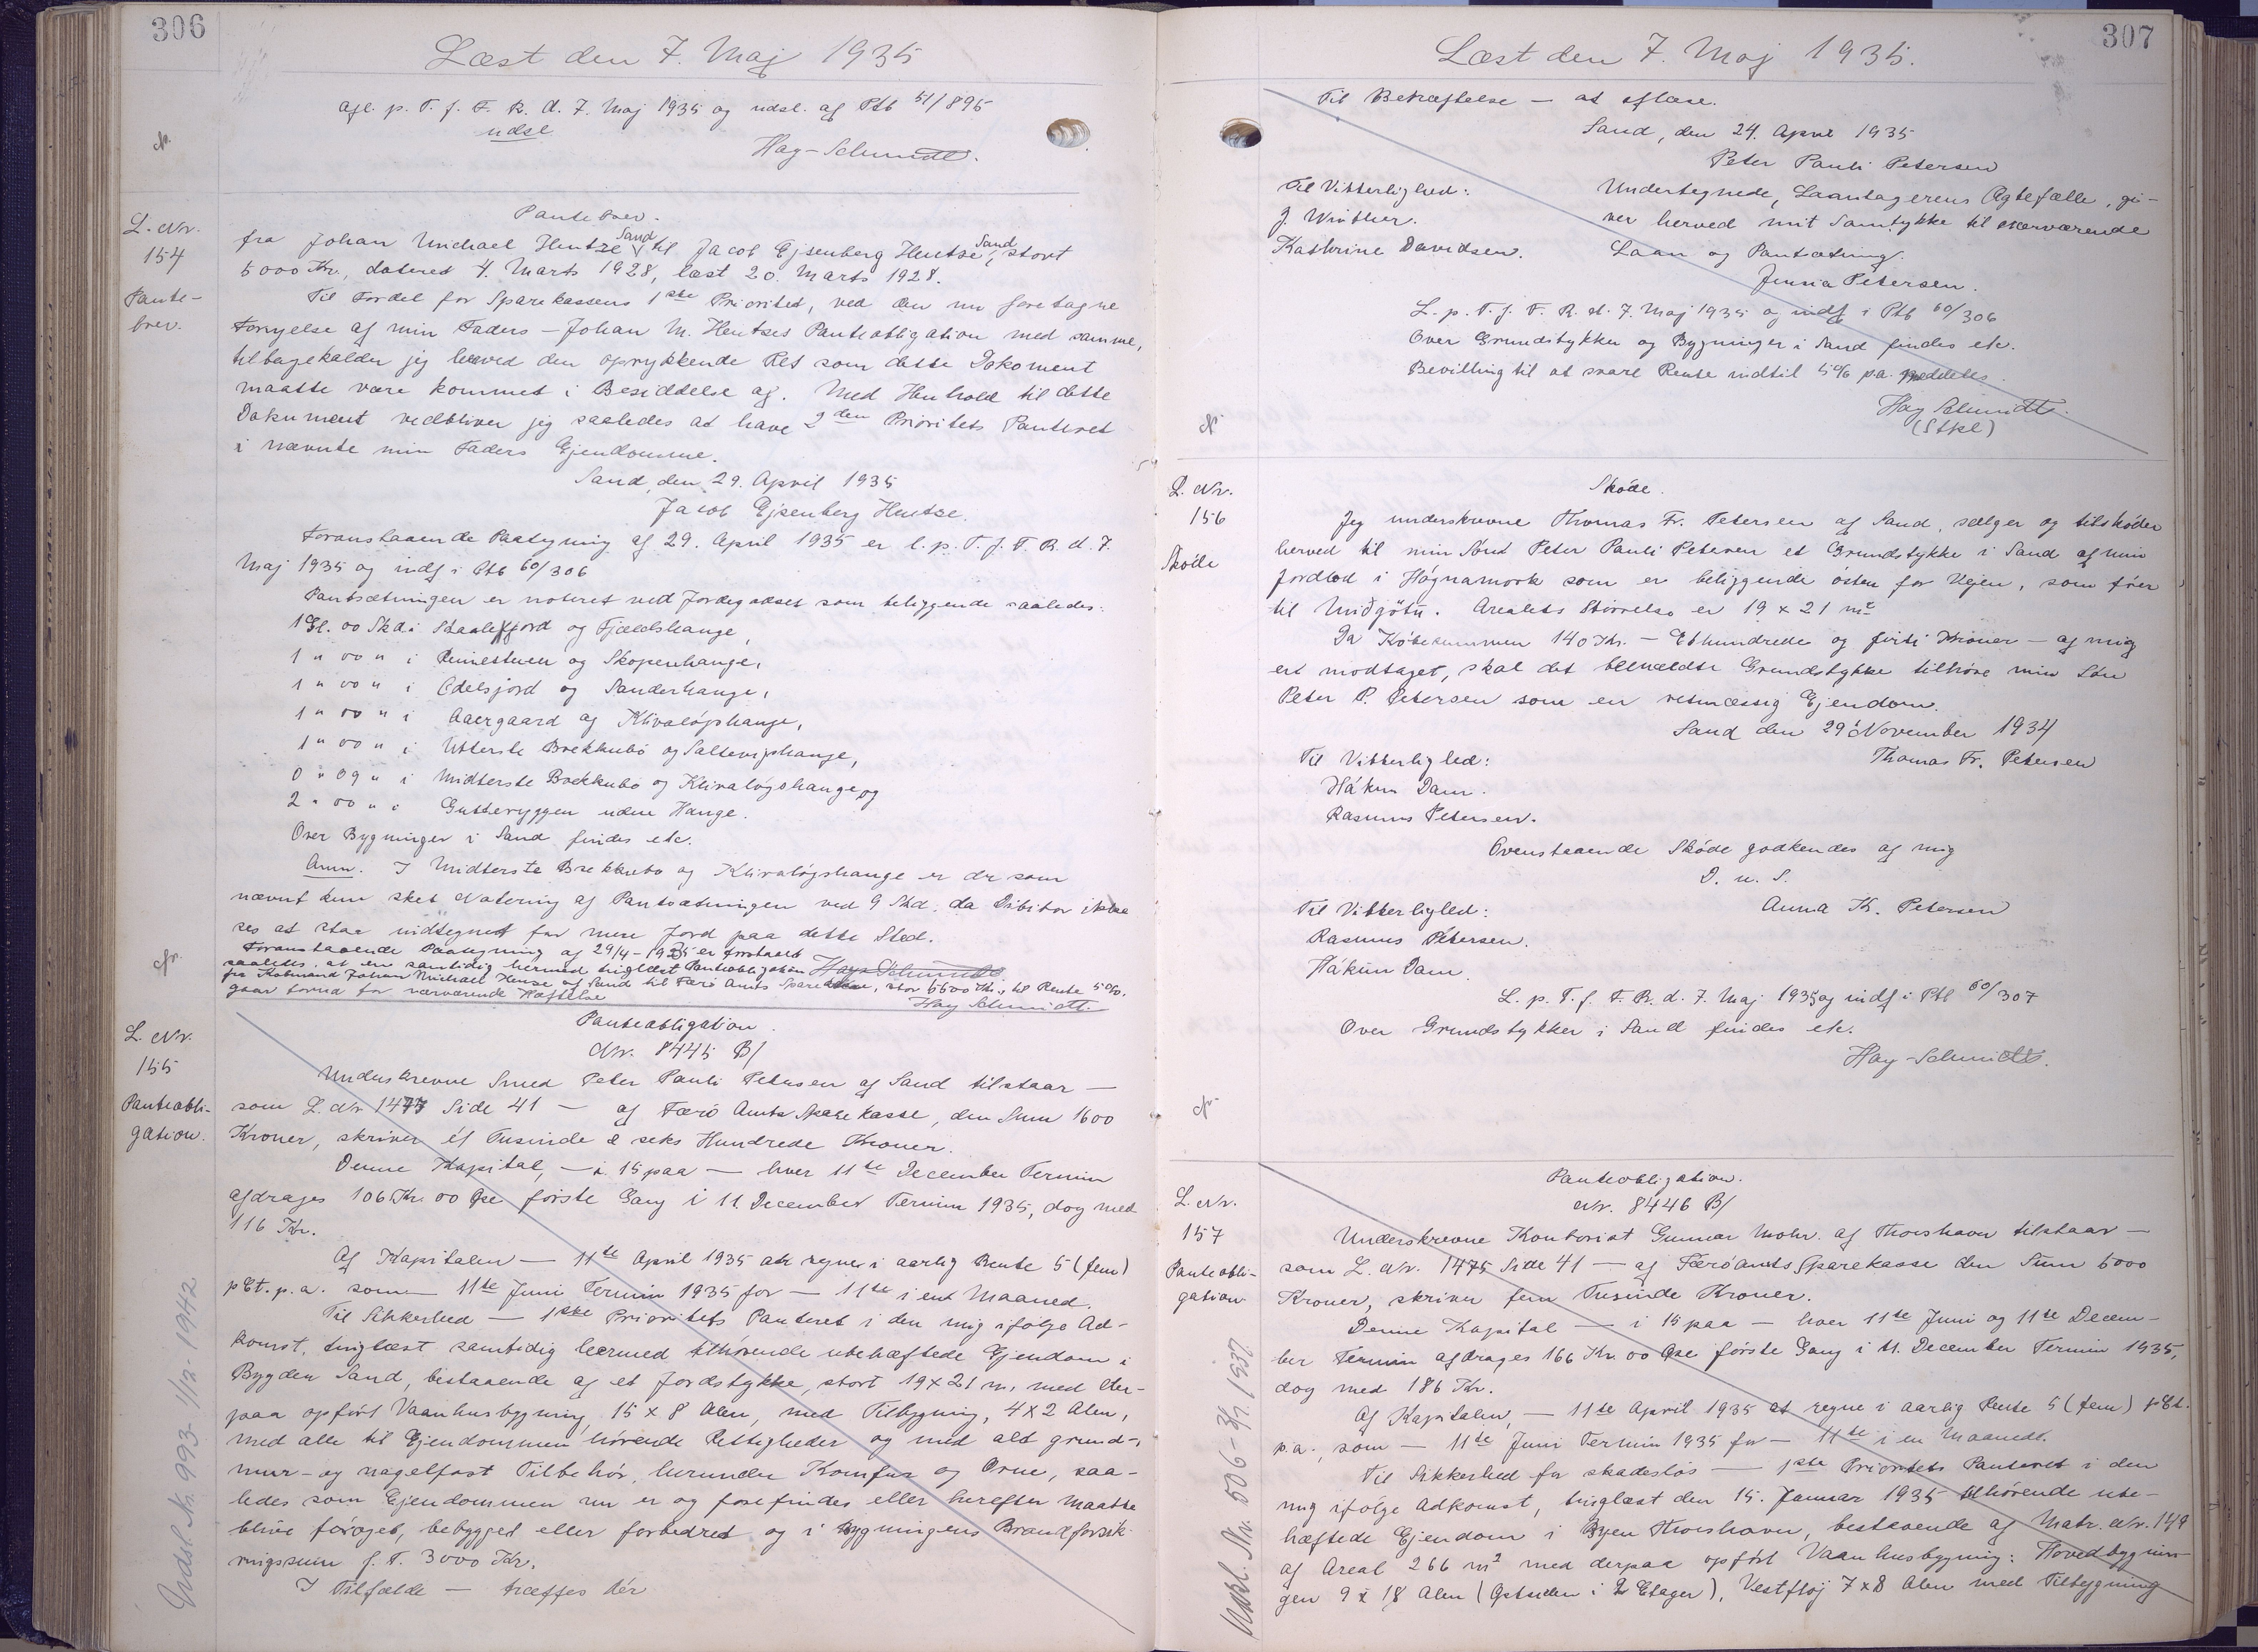 306
Læst den 7. Maj 1935
Afl. p. T. f. F. R. d. 7 Maj 1935 og udsl. af Ptb 51/895
udsl
Hay-Schmidt.
L. Nr.
154
Pante-
brev.
Pantebrev.
fra Johan Michael Hentze Sand til Jacob Ejsenberg Hentze, Sand, stort
5000 Kr., dateret 4. Marts 1928, læst 20. Marts 1928.
Til Fordel for Sparekassens 1ste Prioritet, ved den nu foretagne
Fornyelse af min Faders - Johan M. Hentzes Panteobligation med samme,
tilbagekalder jeg herved den oprykkende Ret som dette Dokument
maatte være kommet i Besiddelse af. Med Henhold til dette
Dokument vedbliver jeg saaledes at have 2den Prioritets Panteret
i nævnte min Faders Ejendomme.
Sand, den 29. April 1935
Jacob Ejsenberg Hentze.
Foranstaaende Paategning af 29. April 1935 er l. p. T. f. F. R. d. 7.
Maj 1935 og indf i Ptb 60/306
Pantsætningen er noteret ved Jordegodset som beliggende saaledes:
1 Gl. 00 Skd i Skaalefjord og Fjældshauge,
1 " 00 " i og Skopenhauge,
1 " 00 " i Edelsjord og Sanderhauge,
1 " 00 " i Aaergaard og Klivaløjshauge,
1 " 00 " i Utterste Brekkubø og Saltevijshauge,
0 " 09 " i Midterste Brekkubø og Klivaløjshauge og
2 " 00 " i Gutteryggen uden Hauge.
Over Bygninger i Sand findes etc.
Anm. I Midterste Brekkubø og Klivaløjshauge er der som
nævnt kun sket Notering af Pantsætningen ved 9 Skd. da Debitor ikke
ses at staa indtegnet for mere Jord paa dette Sted.
Foranstaaende Paategning af 29/4-1935 er forstaaet
saaledes, at en samtidig hermed tinglæst Panteobligation Hay-Schmidt
fra Købmand Johan Michael Hense af Sand til Færø Amts Sparekasse, stor 6600 Kr., til Rente 5%,
gaar forud for nærværende Hæftelse
Hay Schmidt.
L. Nr.
155
Panteobli-
gation.
Panteobligation.
Nr. 8445 B/
Underskrevne Smed Peter Pauli Petersen af Sand tilstaar -
som L. Nr 1475 Side 41 - af Færø Amts Sparekasse, den Sum 1600
Kroner, skriver ét Tusinde & seks Hundrede Kroner.
Denne Kapital, - i 15 paa - hver 11te December Termin
afdrages 106 Kr. 00 Øre første Gang i 11. December Termin 1935, dog med
116 Kr.
Af Kapitalen - 11te April 1935 at regne i aarlig Rente 5 (fem)
pCt. p.a. som - 11te Juni Termin 1935 for - 11te i ent Maaned.
Til Sikkerhed - 1ste Prioritets Panteret i den mig ifølge Ad-
komst, tinglæst samtidig hermed tilhørende ubehæftede Ejendom i
Bygden Sand, bestaaende af et Jordstykke, stort 19 x 21 m, med der-
paa opført Vaanhusbygning 15 x 8 Alen, med Tilbygning, 4 x 2 Alen,
med alle til Ejendommen hørende Rettigheder og med alt grund-,
mur- og nagelfast Tilbehør, herunder Komfur og Ovne, saa-
ledes som Ejendommen nu er og forefindes eller herefter maatte
blive forøget, bebygget eller forbedret og i Bygningens Brandforsik-
ringssum f. T. 3000 Kr.
I Tilfælde - træffes dér
Udsl. Nr. 993 - 1/12 - 1942
307
Læst den 7. Maj 1935.
Til Bekræftelse - at aflæse.
Sand, den 24. April 1935
Peter Pauli Petersen
Til Vitterlighed:
J. Winther.
Kathrine Davidsen.
Undertegnede, Laantagerens Ægtefælle, gi-
ver herved mit Samtykke til nærværende
Laan og Pantsætning.
Jensia Petersen.
L. p. T. f. F. R. d. 7. Maj 1935 og indf i Ptb 60/306
Over Grundstykker og Bygninger i Sand findes etc.
Bevilling til at svare Rente indtil 5% p.a. meddeles.
Hay Schmidt.
(Stpl)
L. Nr.
156
Skøde
Skøde.
Jeg underskrevne Thomas Fr. Petersen af Sand, sælger og tilskøder
herved til min Sønd Peter Pauli Petersen et Grundstykke i Sand af min
Jordlod i Høgnamørk som er beliggende østen for Vejen, som fører
til Miðgøtu. Arealets Størrelse er 19 x 21 m²
Da Købesummen 140 Kr. - Ethundrede og firti Kroner - af mig
ert modtaget, skal det bemældte Grundstykke tilhøre min Søn
Peter P. Petersen som en retmæssig Ejendom.
Sand den 29 November 1934
Thomas Fr. Petersen
Til Vitterlighed:
Hákun Dam.
Rasmus Petersen.
Ovenstaaende Skøde godkendes af mig
D. u. S.
Anna K. Petersen
Til Vitterlighed:
Rasmus Petersen.
Hákun Dam.
L. p. T. f. F. R. d. 7. Maj 1935 og indf i Ptb 60/307
Over Grundstykker i Sand findes etc.
Hay-Schmidt.
L. Nr.
157
Panteobli-
gation
Panteobligation.
Nr. 8446 B/
Underskrevne Kontorist Gunnar Mohr. af Thorshavn tilstaar -
som L. Nr. 1475 Side 41 - af Færø Amts Sparekasse den Sum 5000
Kroner, skriver fem Tusinde Kroner.
Denne Kapital - i 15 paa - hver 11te Juni og 11te Decem-
ber Termin afdrages 166 Kr. 00 Øre første Gang i 11. December Termin 1935,
dog med 186 Kr.
Af Kapitalen, - 11te April 1935 at regne i aarlig Rente 5 (fem) pCt.
p.a., som - 11te Juni Termin 1935 for - 11te i en Maaned.
Til Sikkerhed for skadesløs - 1ste Prioritets Panteret i den
mig ifølge Adkomst, tinglæst den 15. Januar 1935 tilhørende ube-
hæftede Ejendom i Byen Thorshavn, bestaaende af Matr. Nr. 149
af Areal 266 m² med derpaa opført Vaanhusbygning: Hovedbygnin-
gen 9 x 18 Alen (Østsiden i 2 Etager), Vestfløj 7 x 8 Alen med Tilbygning